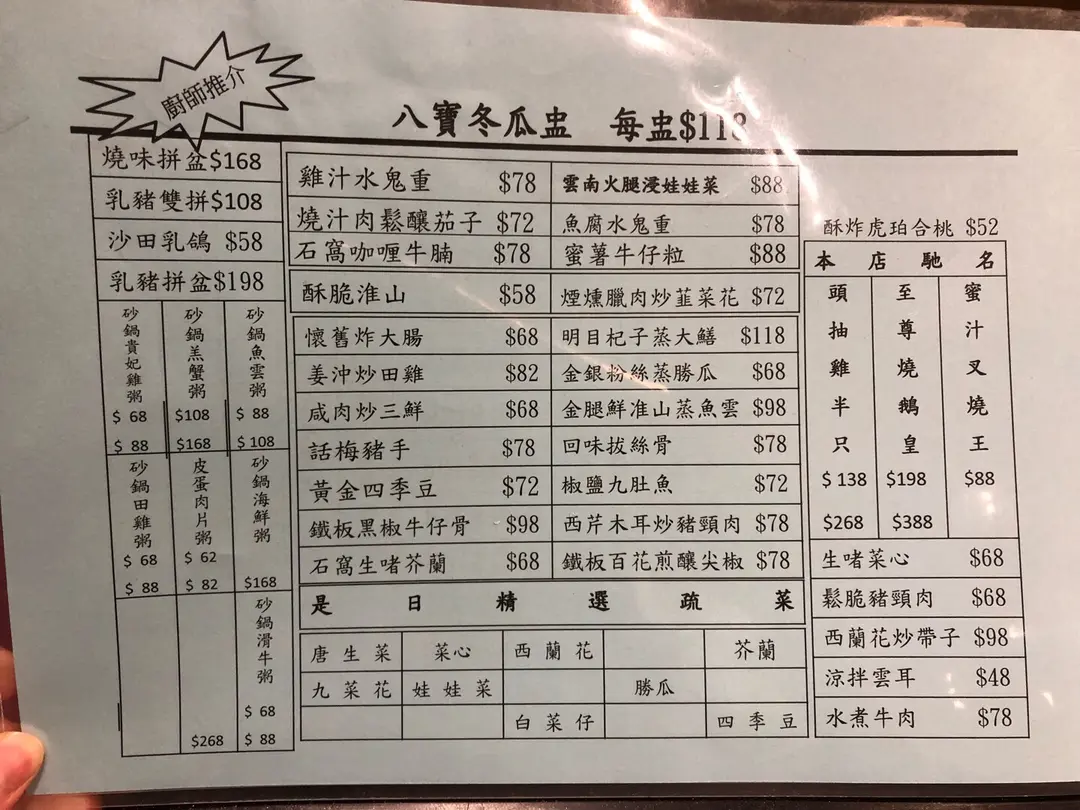 廚師推介
八寶冬瓜盅 每盅$118
燒味拼盆$168
乳豬雙拼$108
沙田乳鴿 $58
乳豬拼盆$198
砂鍋貴妃雞粥
$ 68
$ 88
砂鍋羔蟹粥
$108
$168
砂鍋魚雲粥
$ 88
$ 108
砂鍋田雞粥
$ 68
$ 88
皮蛋肉片粥
$ 62
$ 82
砂鍋海鮮粥
$168
$268
砂鍋滑牛粥
$ 68
$ 88
雞汁水鬼重 $78
雲南火腿浸娃娃菜 $88
燒汁肉鬆釀茄子 $72
魚腐水鬼重 $78
石窩咖喱牛腩 $78
蜜薯牛仔粒 $88
酥脆淮山 $58
煙燻臘肉炒韮菜花 $72
懷舊炸大腸 $68
明目杞子蒸大鱔 $118
姜沖炒田雞 $82
金銀粉絲蒸勝瓜 $68
咸肉炒三鮮 $68
金腿鮮准山蒸魚雲 $98
話梅豬手 $78
回味拔絲骨 $78
黃金四季豆 $72
椒鹽九肚魚 $72
鐵板黑椒牛仔骨 $98
西芹木耳炒豬頸肉 $78
石窩生啫芥蘭 $68
鐵板百花煎釀尖椒 $78
是日精選疏菜
唐生菜 菜心 西蘭花 芥蘭
九菜花 娃娃菜 勝瓜
白菜仔 四季豆
酥炸虎珀合桃 $52
本店馳名
頭抽雞半只
$ 138
$268
至尊燒鵝皇
$198
$388
蜜汁叉燒王
$88
生啫菜心 $68
鬆脆豬頸肉 $68
西蘭花炒帶子 $98
涼拌雲耳 $48
水煮牛肉 $78